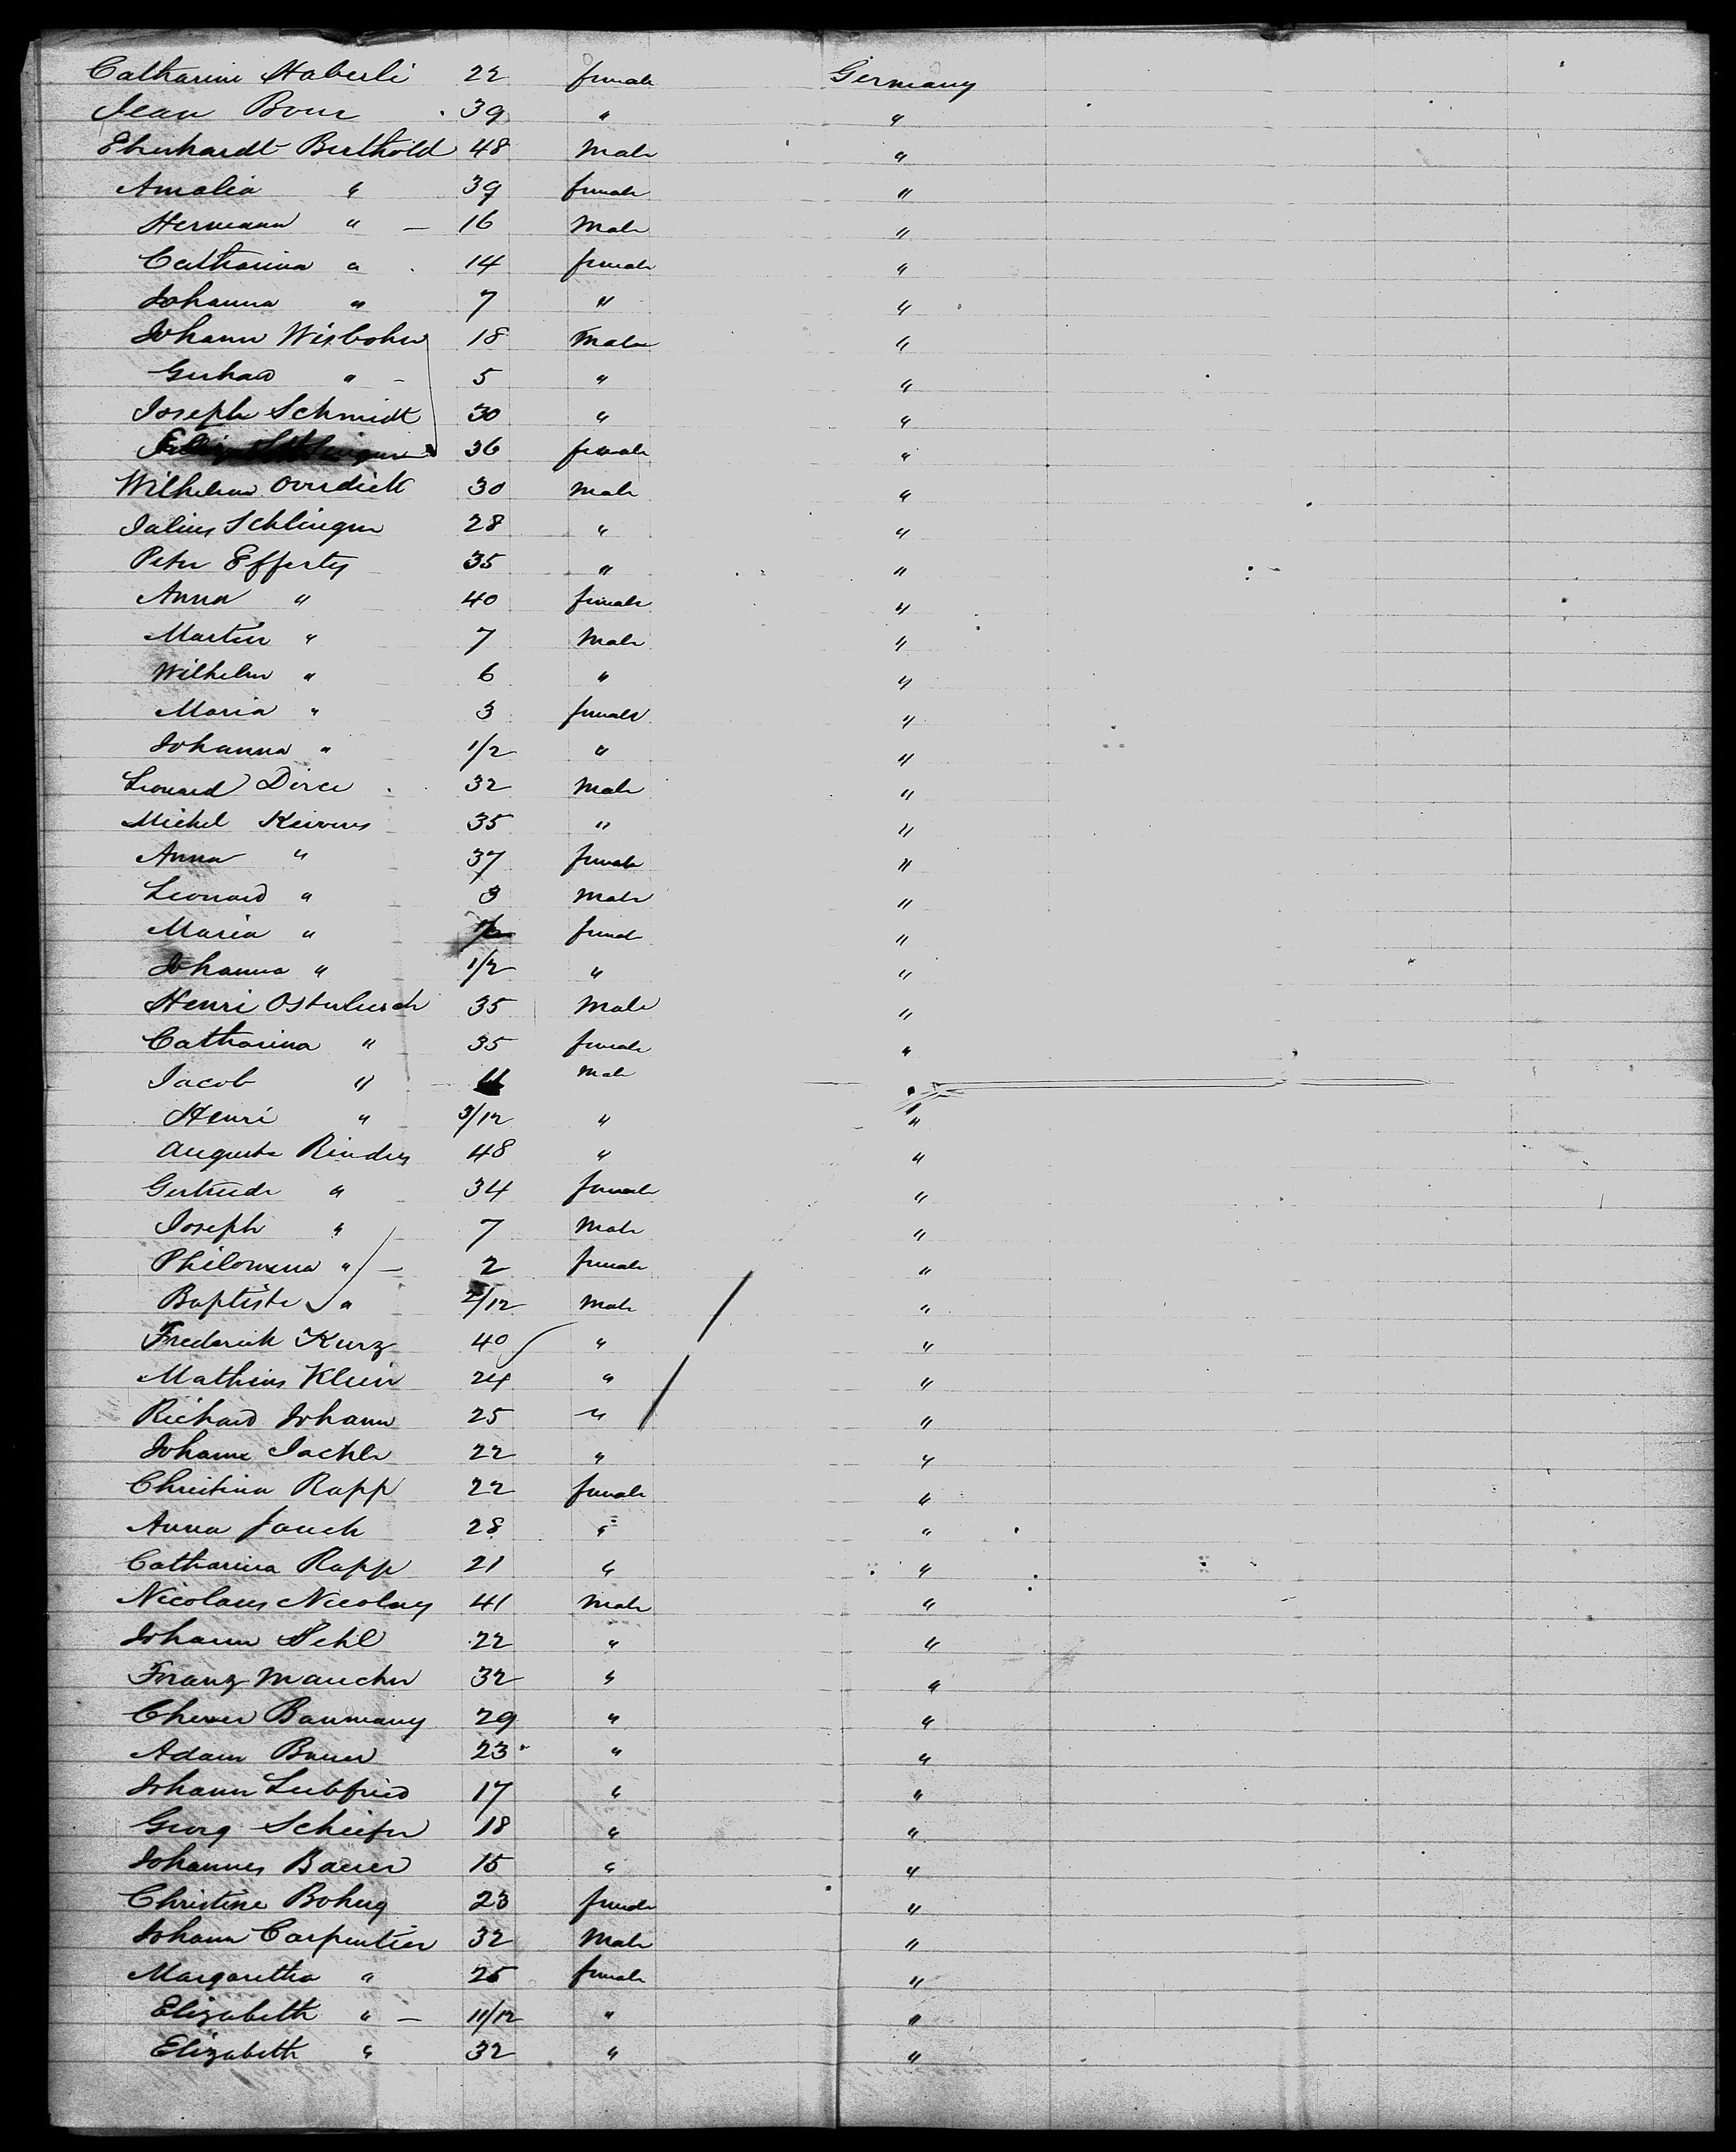 Catharine Haberli 22 female Germany
Jean Bour 39 " "
Eberhardt Berthold 48 Male "
Amalia " 39 female "
Hermann " — 16 Male "
Catharina " 14 female "
Johanna " 7 " "
Johann Wisbohn 18 Male "
Gerhard " - 5 " "
Joseph Schmidt 30 " "
36 female "
Wilhelm Overdiek 30 Male "
Julius Schlingen 28 " "
Peter Effertz 35 " "
Anna " 40 female "
Martin " 7 Male "
Wilhelm " 6 " "
Maria " 3 female "
Johanna " 1/2 " "
Leonard Dirce 32 Male "
Michel 35 " "
Anna " 37 female "
Leonard " 3 Male "
Maria " femal "
Johanna " 1/2 " "
Henri 35 Male "
Catharina " 35 female "
Jacob " 11 Male "
Henri " 3/12 " "
Auguste Rinders 48 " "
Gertrude " 34 female "
Joseph " 7 Male "
Philomena " — 2 female "
Baptiste " 2/12 Male "
Frederick Kurz 40 " "
Mathias Klein 24 " "
Richard Johann 25 " "
Johann Jachle 22 " "
Christina Rapp 22 female "
Anna Jauch 28 " "
Catharina Rapp 21 " "
Nicolaus Nicolay 41 Male "
Johann Hehl 22 " "
Franz Maucher 32 " "
Baumany 29 " "
Adam Bauer 23 " "
Johann Leibfried 17 " "
Georg Scheifer 18 " "
Johannes Bauer 15 " "
Christine Bohug 23 female "
Johann Carpentier 32 Male "
Margaretha " 25 female "
Elizabeth " — 11/12 " "
Elizabeth " 32 " "